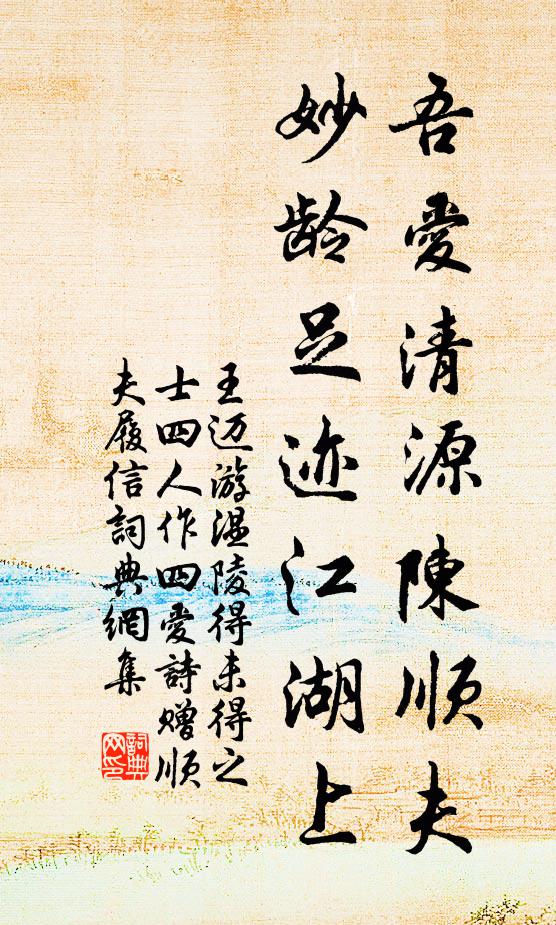 吾愛清源陳順夫
妙龄足迹江湖上
王迈游温陵得未得之
士四人作四愛詩赠順
夫履信詞典網集
詞典网印